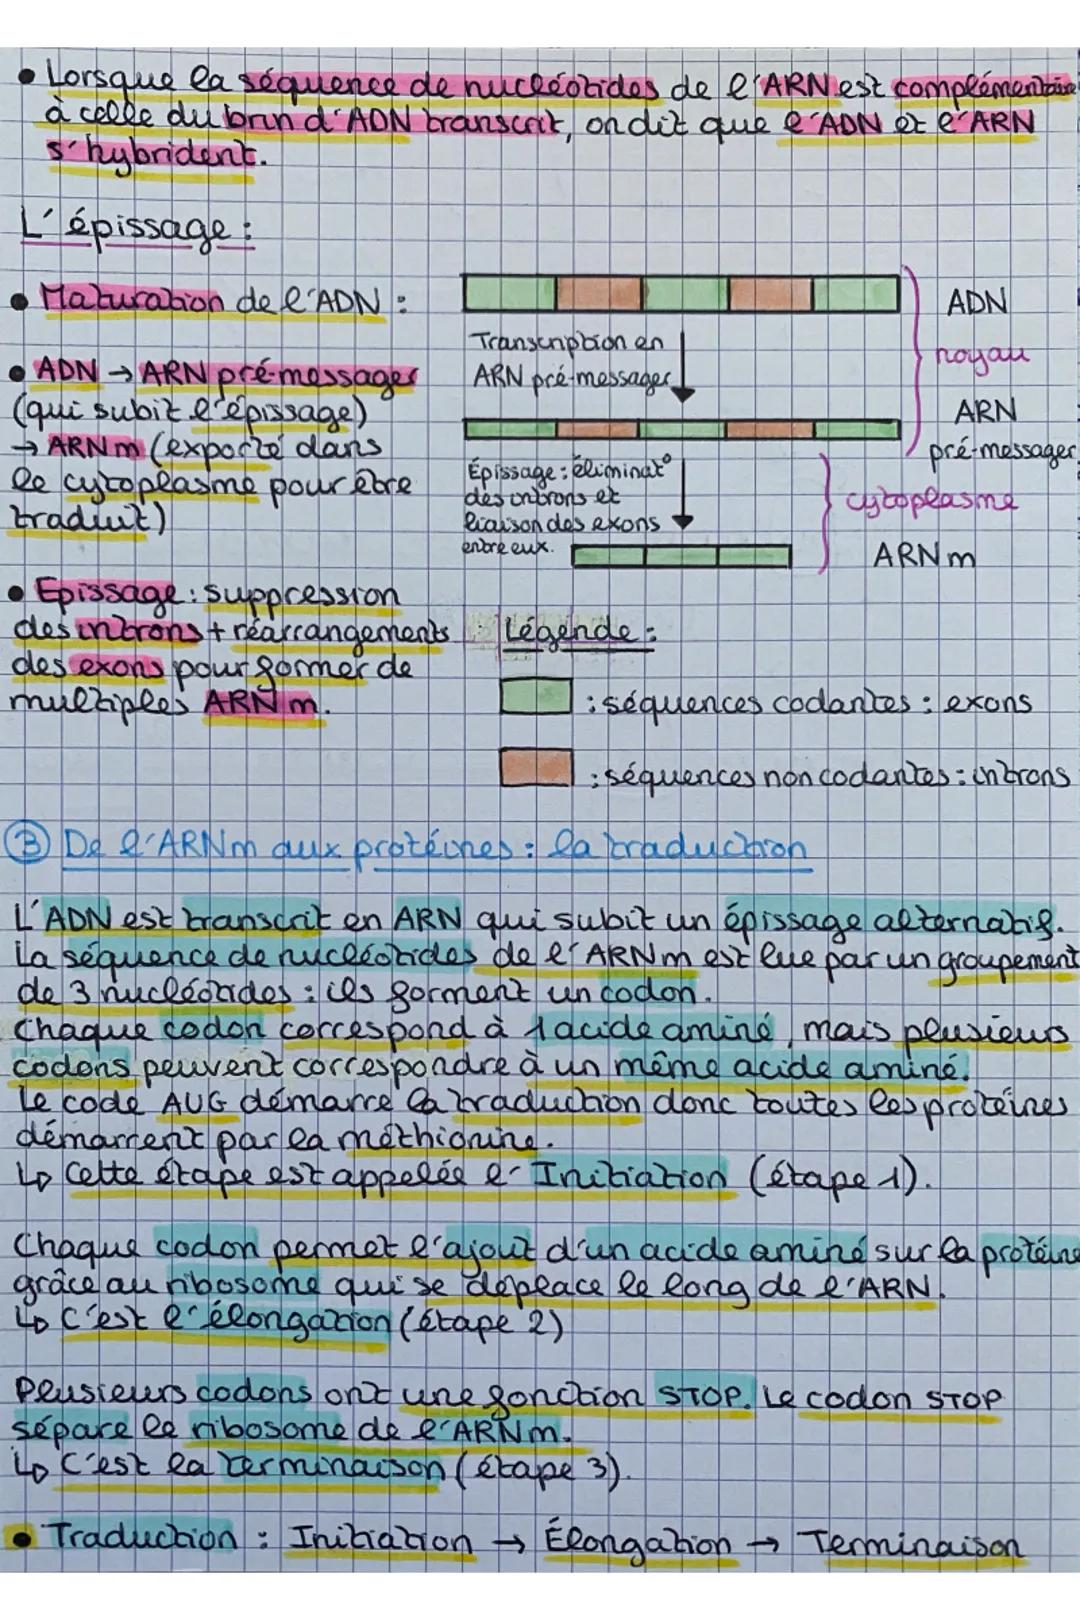 • Lorsque la séquence de nucléotides de l'ARN est complémentaire
à celle du brin d'ADN transcrit, on dit que l'ADN et l'ARN
s'hybrident.
L'épissage :
• Maturation de l'ADN :
• ADN → ARN pré-messager
(qui subit l'épissage)
→ ARNm (exporté dans
le cytoplasme pour être
traduit)
• Epissage : suppression
des introns + réarrangements
des exons pour former de
multiples ARNm.
ADN
Transcription en
ARN pré-messager
noyau
ARN
pré-messager
Épissage : éliminat°
des introns et
liaison des exons
entre eux.
cytoplasme
ARNm
Légende :
: séquences codantes : exons
: séquences non codantes : introns
③ De l'ARNm aux protéines : la traduction
L'ADN est transcrit en ARN qui subit un épissage alternatif.
La séquence de nucléotides de l'ARNm est lue par un groupement
de 3 nucléotides : ils forment un codon.
Chaque codon correspond à 1 acide aminé, mais plusieurs
codons peuvent correspondre à un même acide aminé.
Le code AUG démarre la traduction donc toutes les protéines
démarrent par la méthionine.
↳ Cette étape est appelée l'Initiation (étape 1).
Chaque codon permet l'ajout d'un acide aminé sur la protéine
grâce au ribosome qui se déplace le long de l'ARN.
↳ C'est l'élongation (étape 2)
Plusieurs codons ont une fonction STOP. Le codon STOP
sépare le ribosome de l'ARNm.
↳ C'est la terminaison (étape 3).
• Traduction : Initiation → Élongation → Terminaison